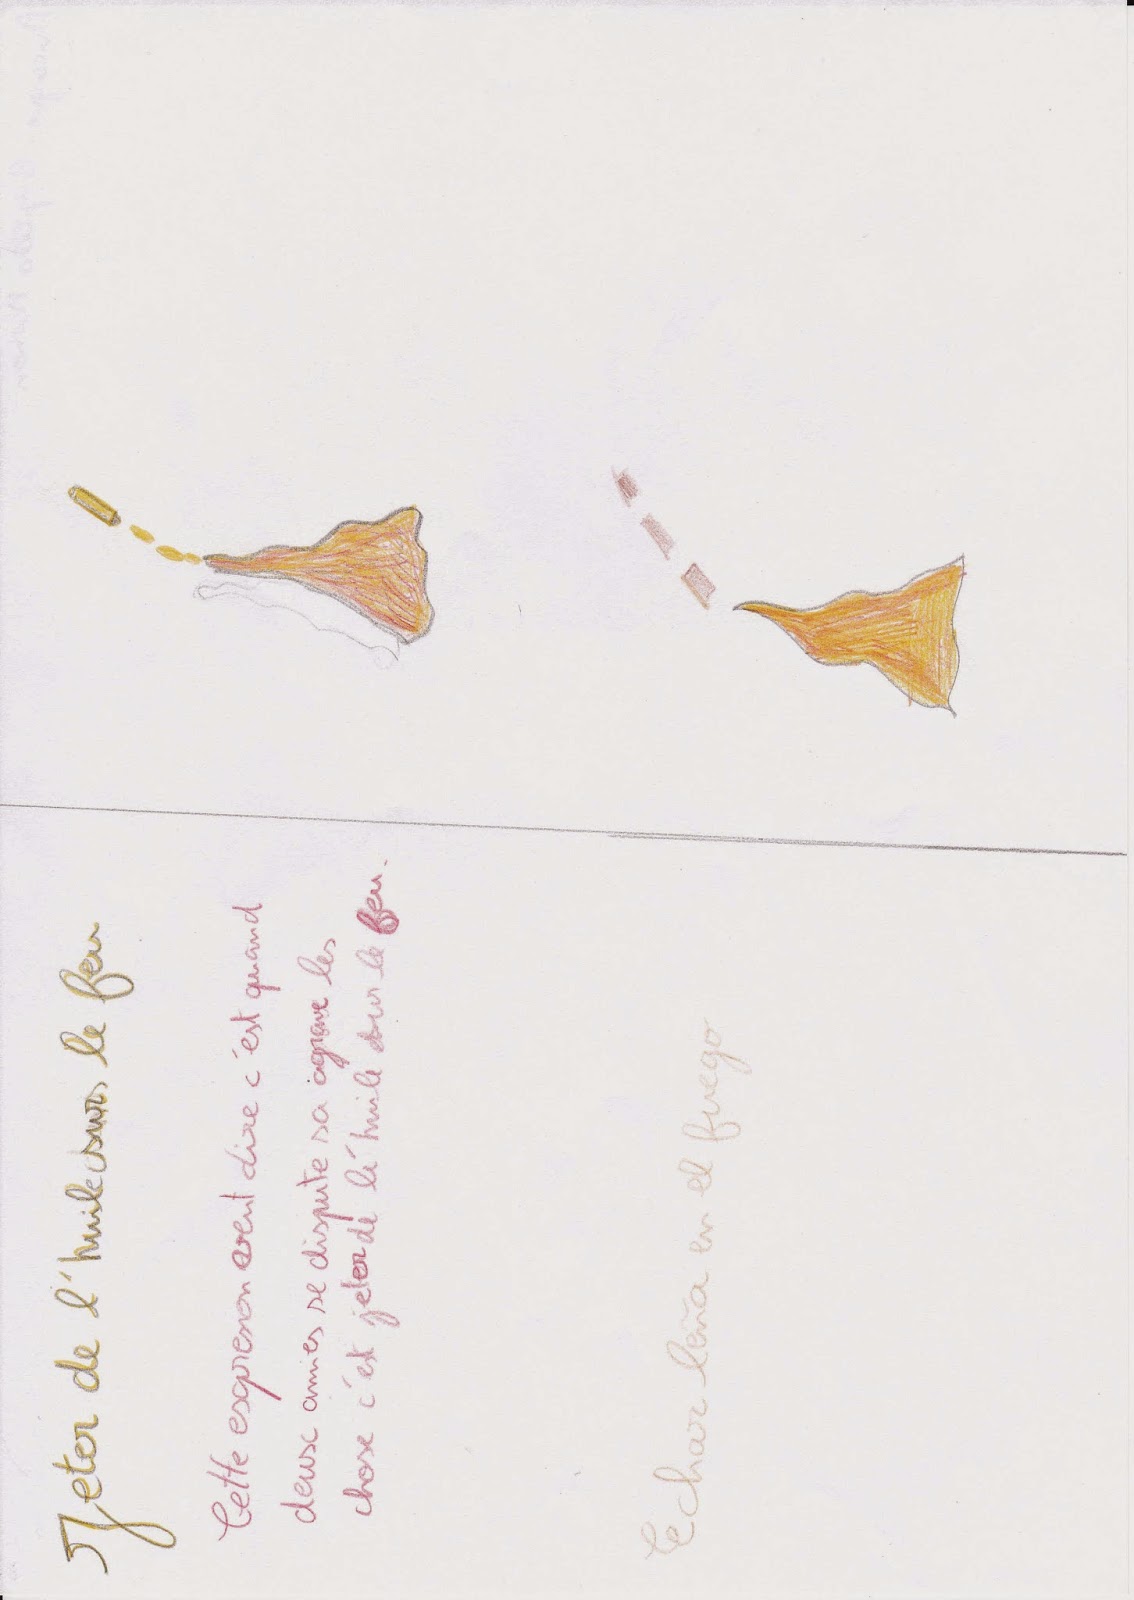 Jeter de l'huile sur le feu
Cette expresion veut dire c'est quand
deux amies se dispute sa agrave les
chose c'est jeter de l'huile sur le feu.
Echar leña en el fuego